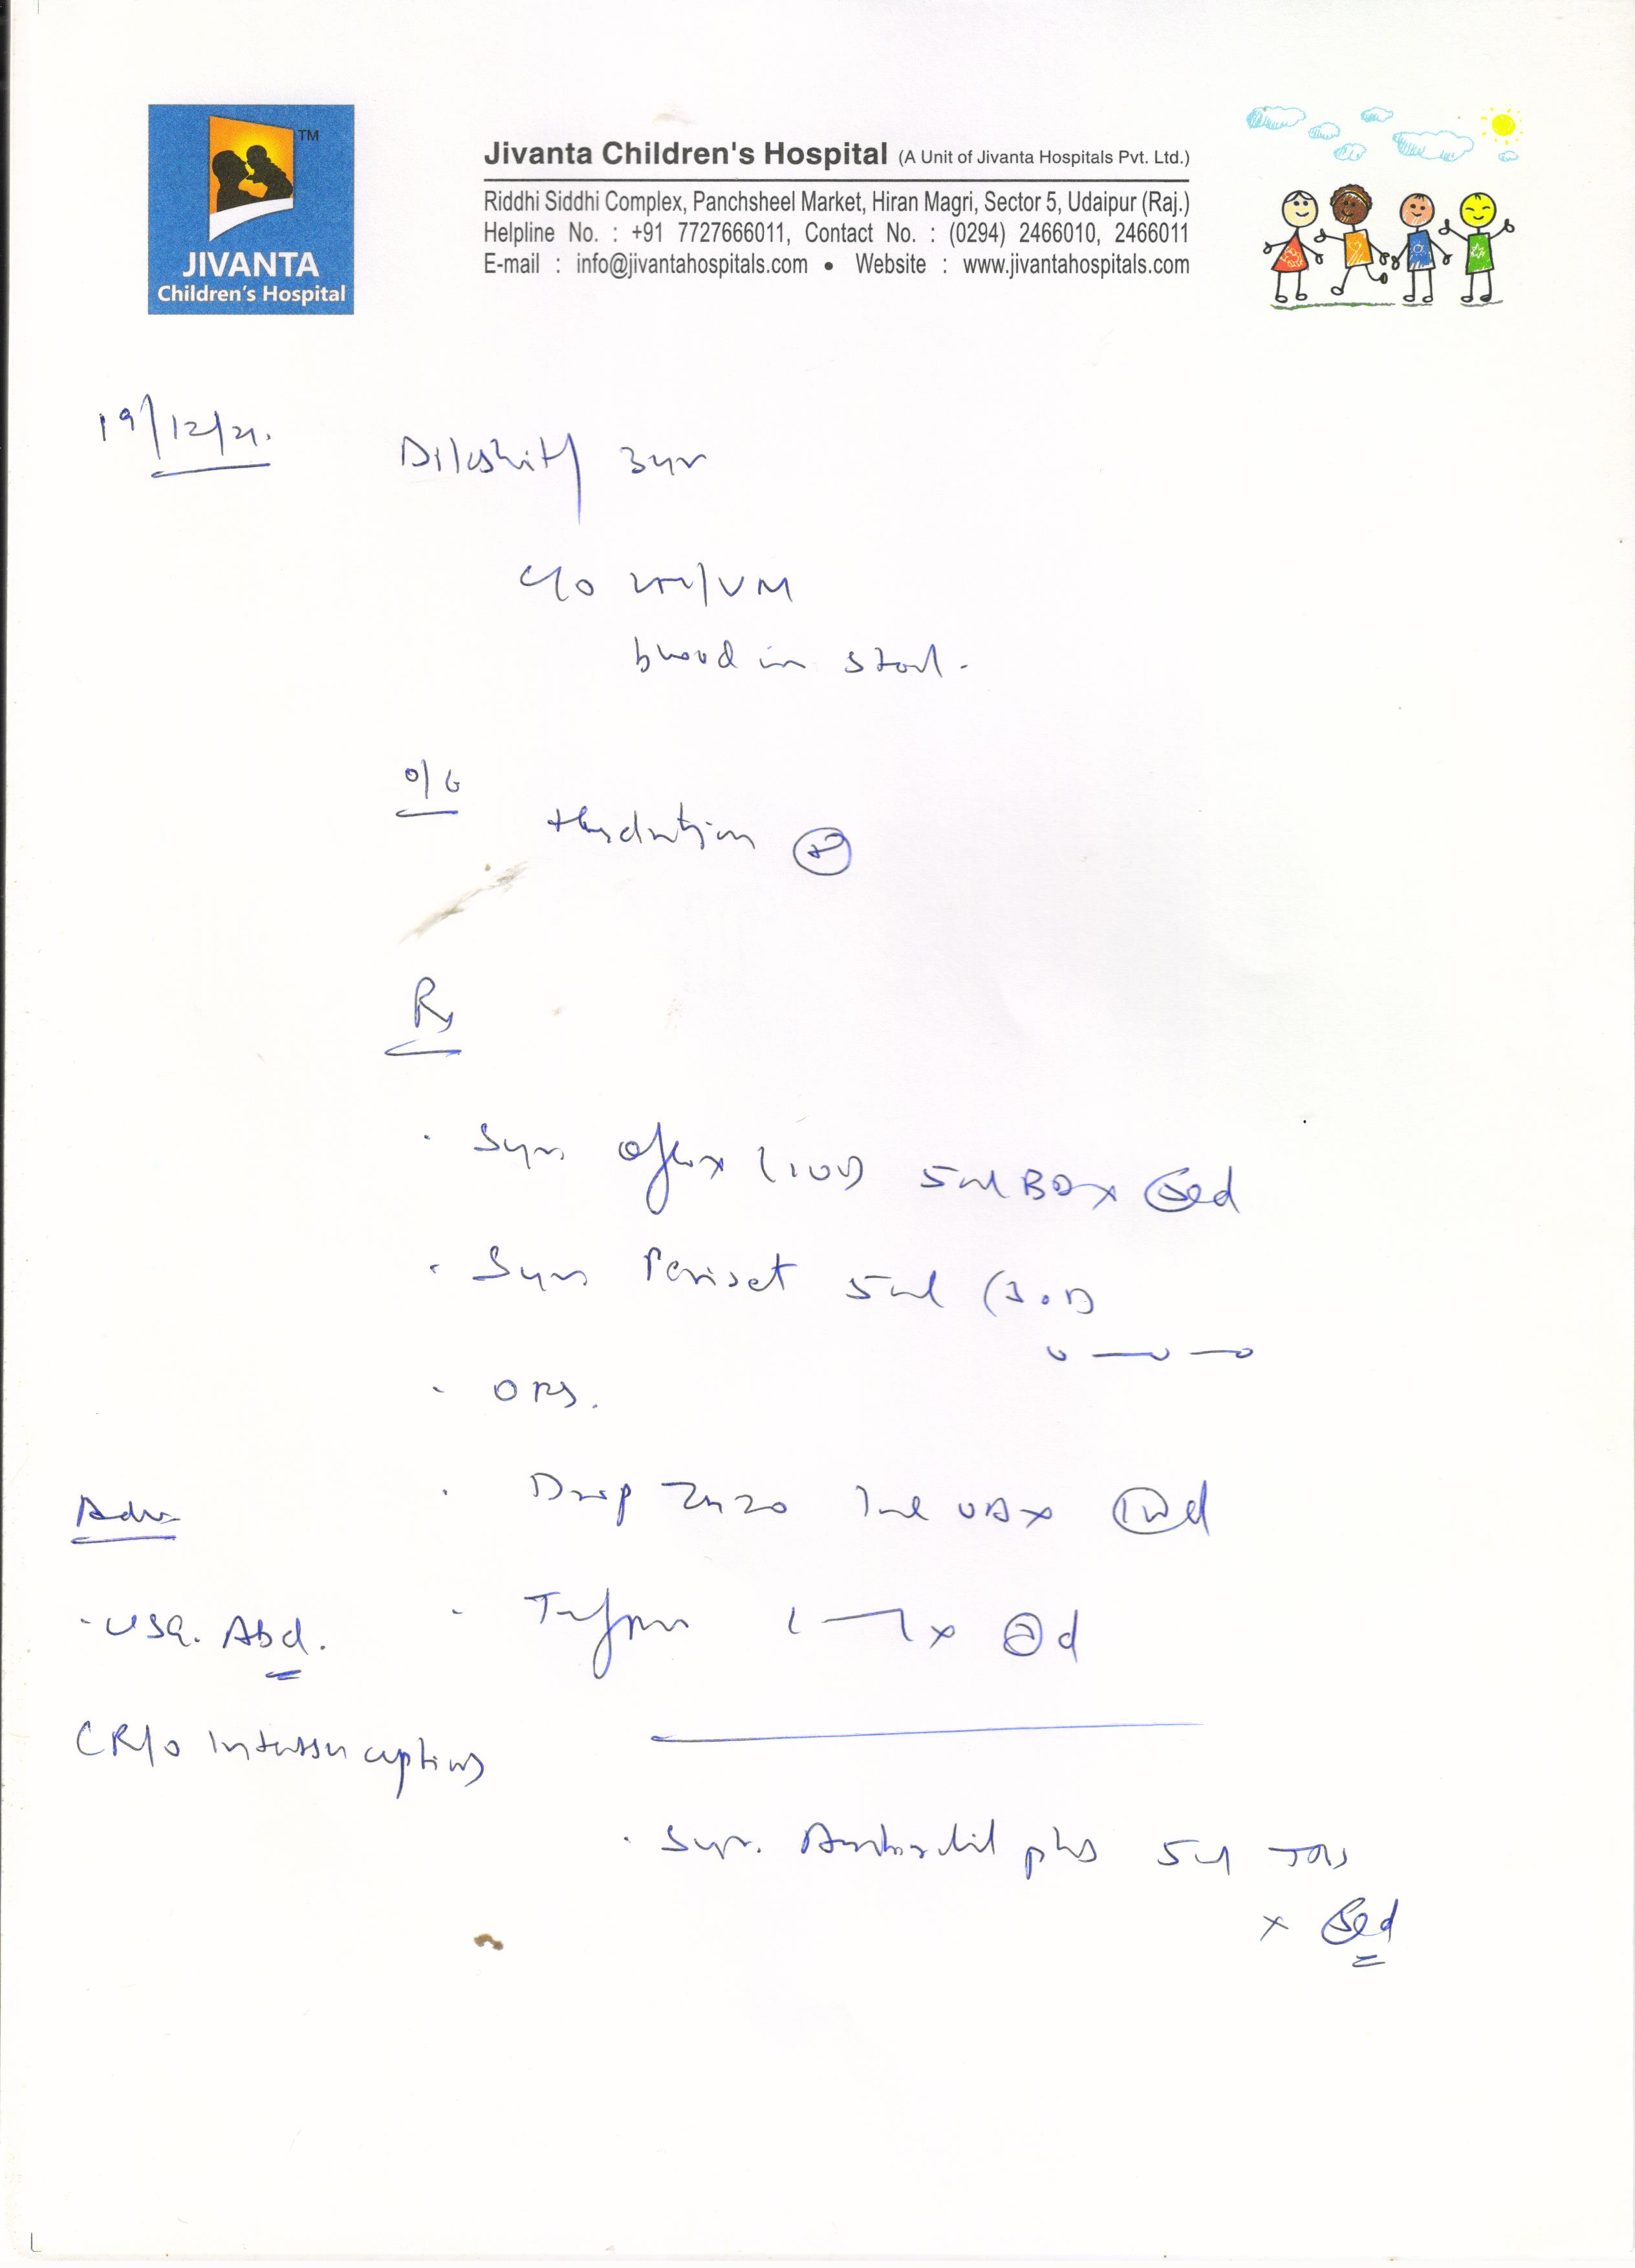 TM
JIVANTA
Children's Hospital
Jivanta Children's Hospital (A Unit of Jivanta Hospitals Pvt. Ltd.)
Riddhi Siddhi Complex, Panchsheel Market, Hiran Magri, Sector 5, Udaipur (Raj.)
Helpline No. : +91 7727666011, Contact No. : (0294) 2466010, 2466011
E-mail : info@jivantahospitals.com • Website : www.jivantahospitals.com
19/12/21.
3yr
c/o
blood in stool.
Hydration
Rx
Syr. Oflox (100) 5ml BD x 5d
Syr. 5ml
ORS.
Drop 1ml OD x
x d
Adv
USG. Abd.
R/o Intussusception
Syr. plus 5ml TDS
x 5d